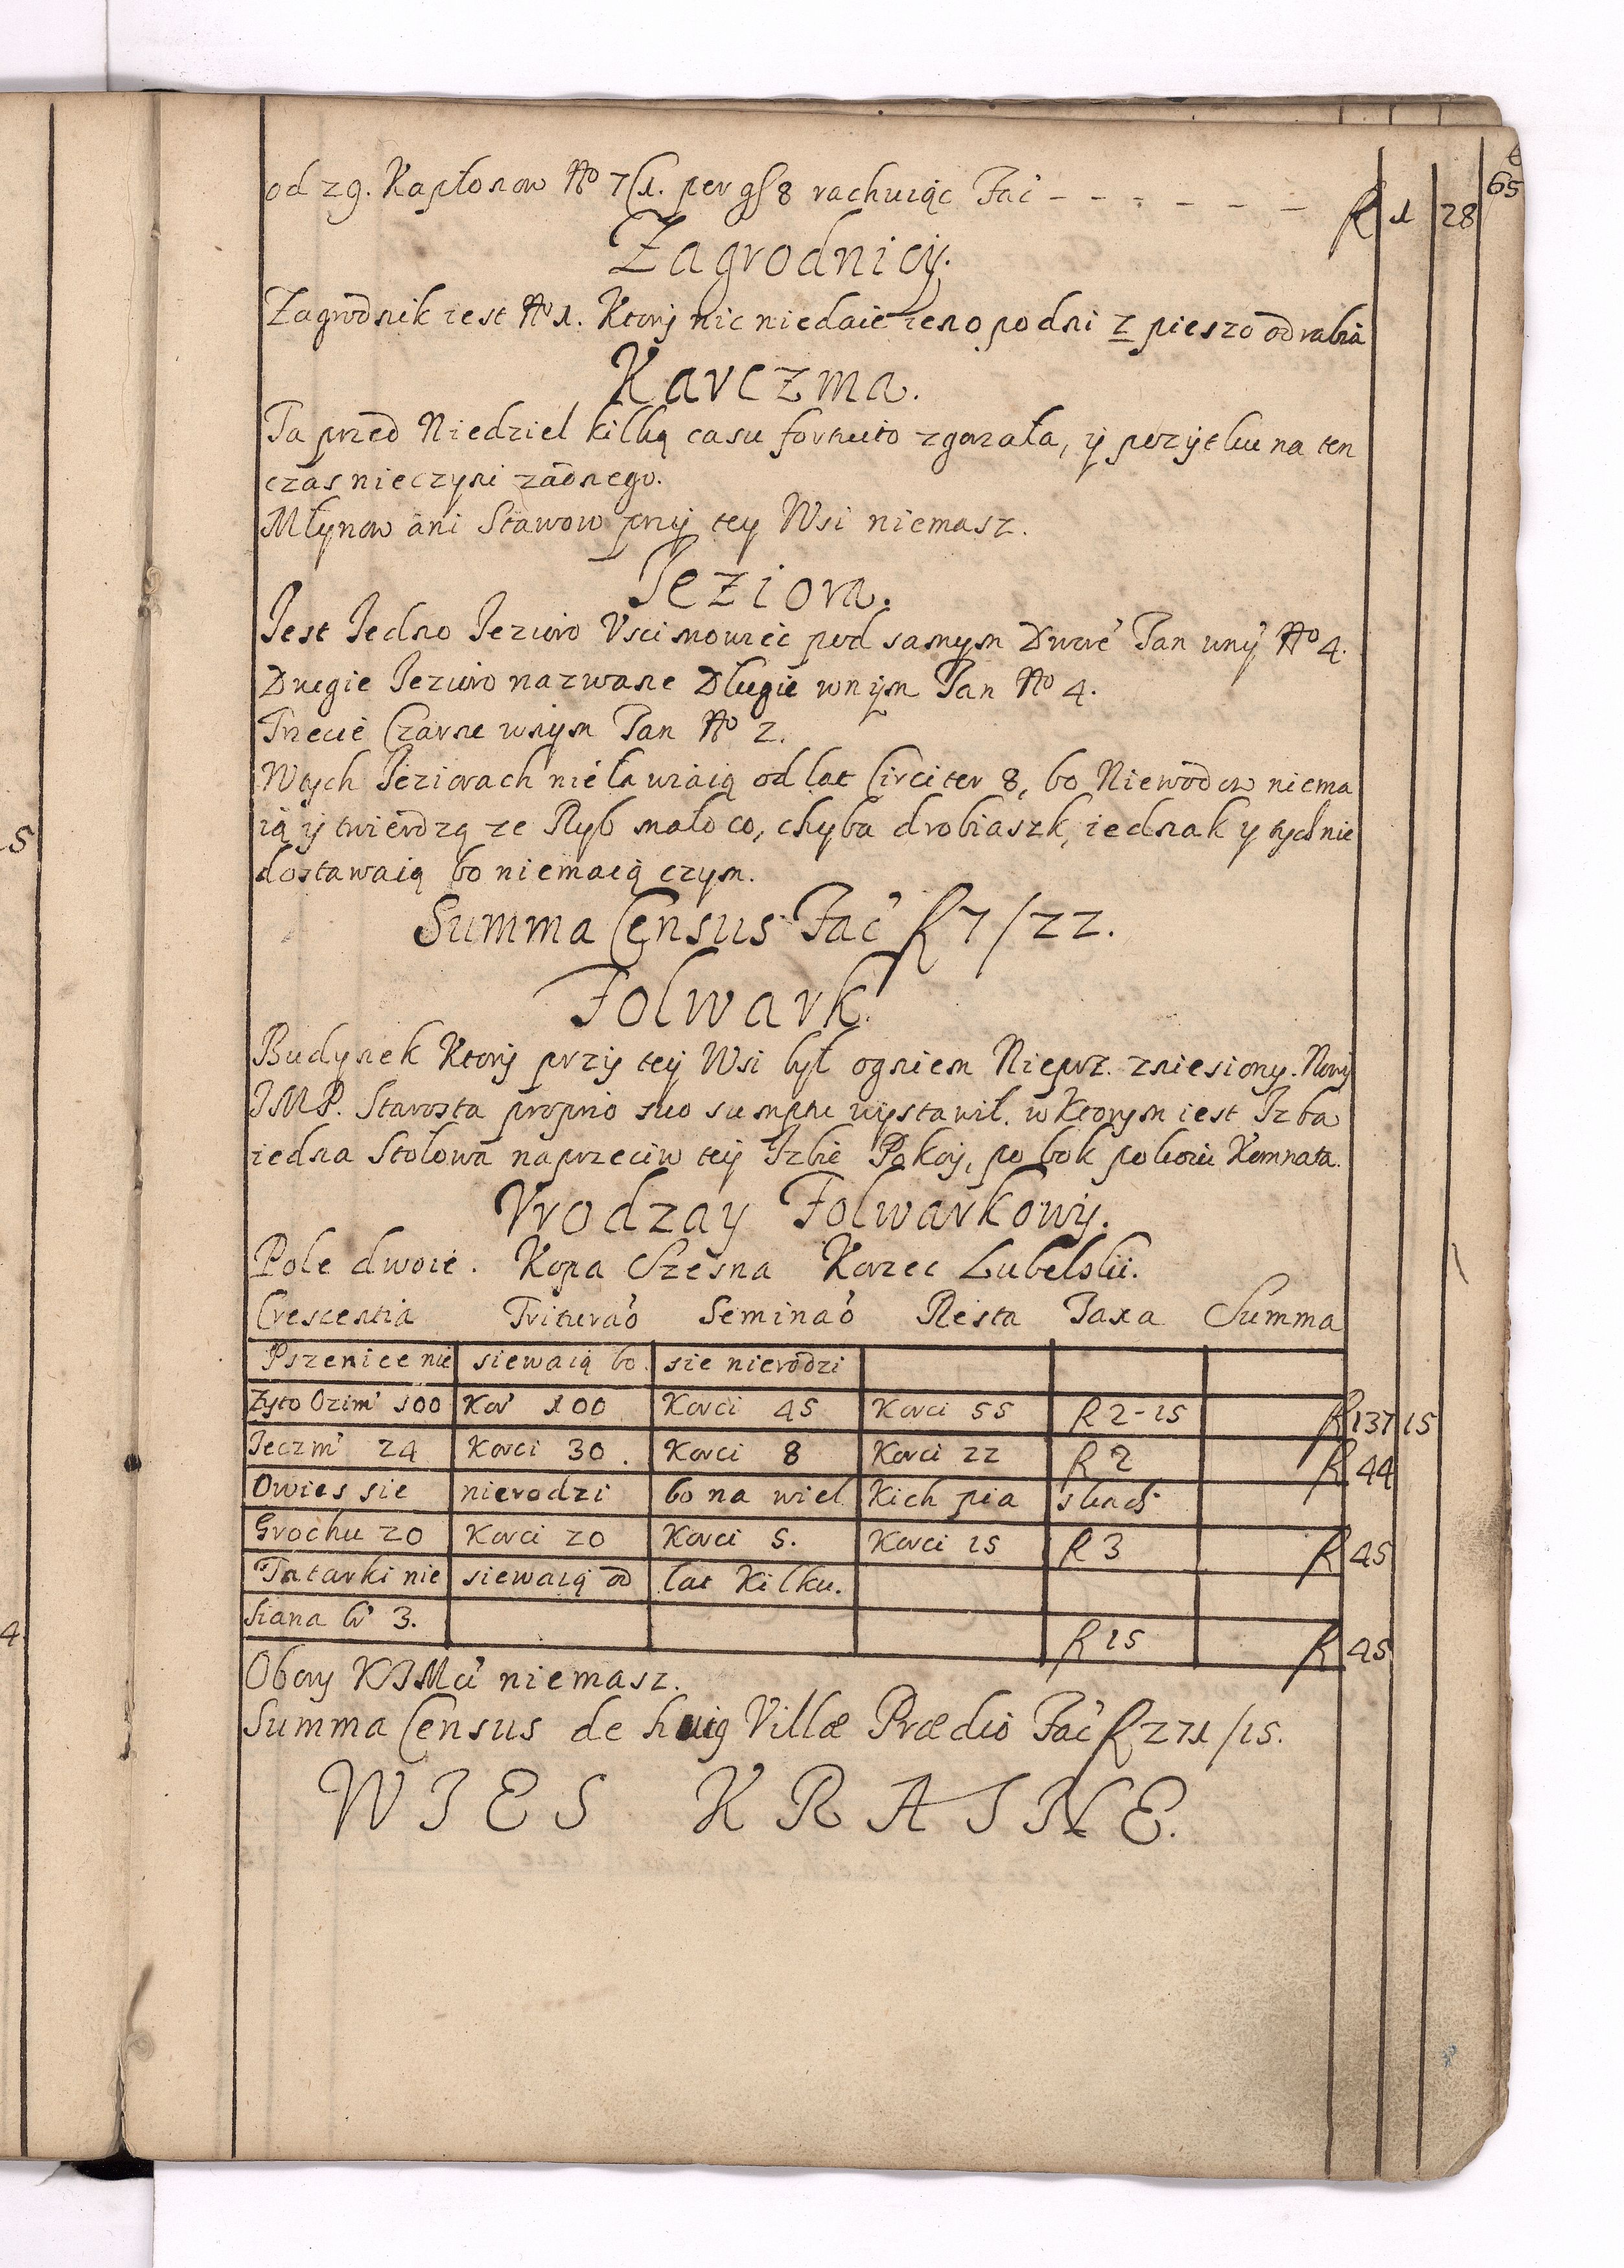 65
od zg. Kapłonow No 7/1. per gſ 8 rachuiąc Fac̃ - - - - - - - f 1 28
Zagrodnicy.
Zagrodnik iest No 1. Ktory nic niedaie ieno po dni 2 pieszo odrabia
Karczma.
Ta przed Niedziel kilką casu fortuito zgorzała, ÿ pozÿtku na ten
czas nieczyni żadnego.
Młynow ani Stawow przÿ tey Wsi niemasz.
Jeziora.
Jest Jedno Jezioro Vscimowiec pod samym Dworẽ Tan wnÿ No 4.
Drugie Jezioro nazwane Dlugie wnÿm Tan No 4.
Trzecie Czarne wnÿm Tan No 2.
Wtych Jeziorach nie ławiaią od lat Circiter 8, bo Niewodow niema
ią ÿ twierdzą ze Ryb mało co, chyba drobiaszk, iednak y tych nie
dostawaią bo niemaią czym.
Summa Census Fac̃ f 7/22.
Folwark.
Budynek Ktory przÿ teÿ Wsi był ogniem Nieprz. zniesiony. Nowÿ
JMP. Starosta proprio suo sumptu wystawił. w Ktorym iest Izba
iedna Stolowa naprzeciw teÿ Izbie Pokoÿ, po bok pokoiu Komnata.
Vrodzay Folwarkowÿ.
Pole dwoie. Kopa Szesna Korzec Lubelski.
Crescentia Triturao Seminao Resta Taxa Summa
Pszenice nie siewaią bo sie nierodzi
Zyto Ozim' 100 Kor' 100 Korci 45 Korci 55 f 2-15 f 137 15
Jeczm' 24 Korci 30. Korci 8 Korci 22 f 2 f 44
Owies sie nierodzi bo na wiel kich pia skach
Grochu 20 Korci 20 Korci 5. Korci 15 f 3 f 45
Tatarki nie siewaią od lat Kilku.
Siana 3. f 15 f 45
Obory KJMci niemasz.
Summa Census de huig Villæ Prædio Fac̃ f 271/15.
WIES KRASNE.